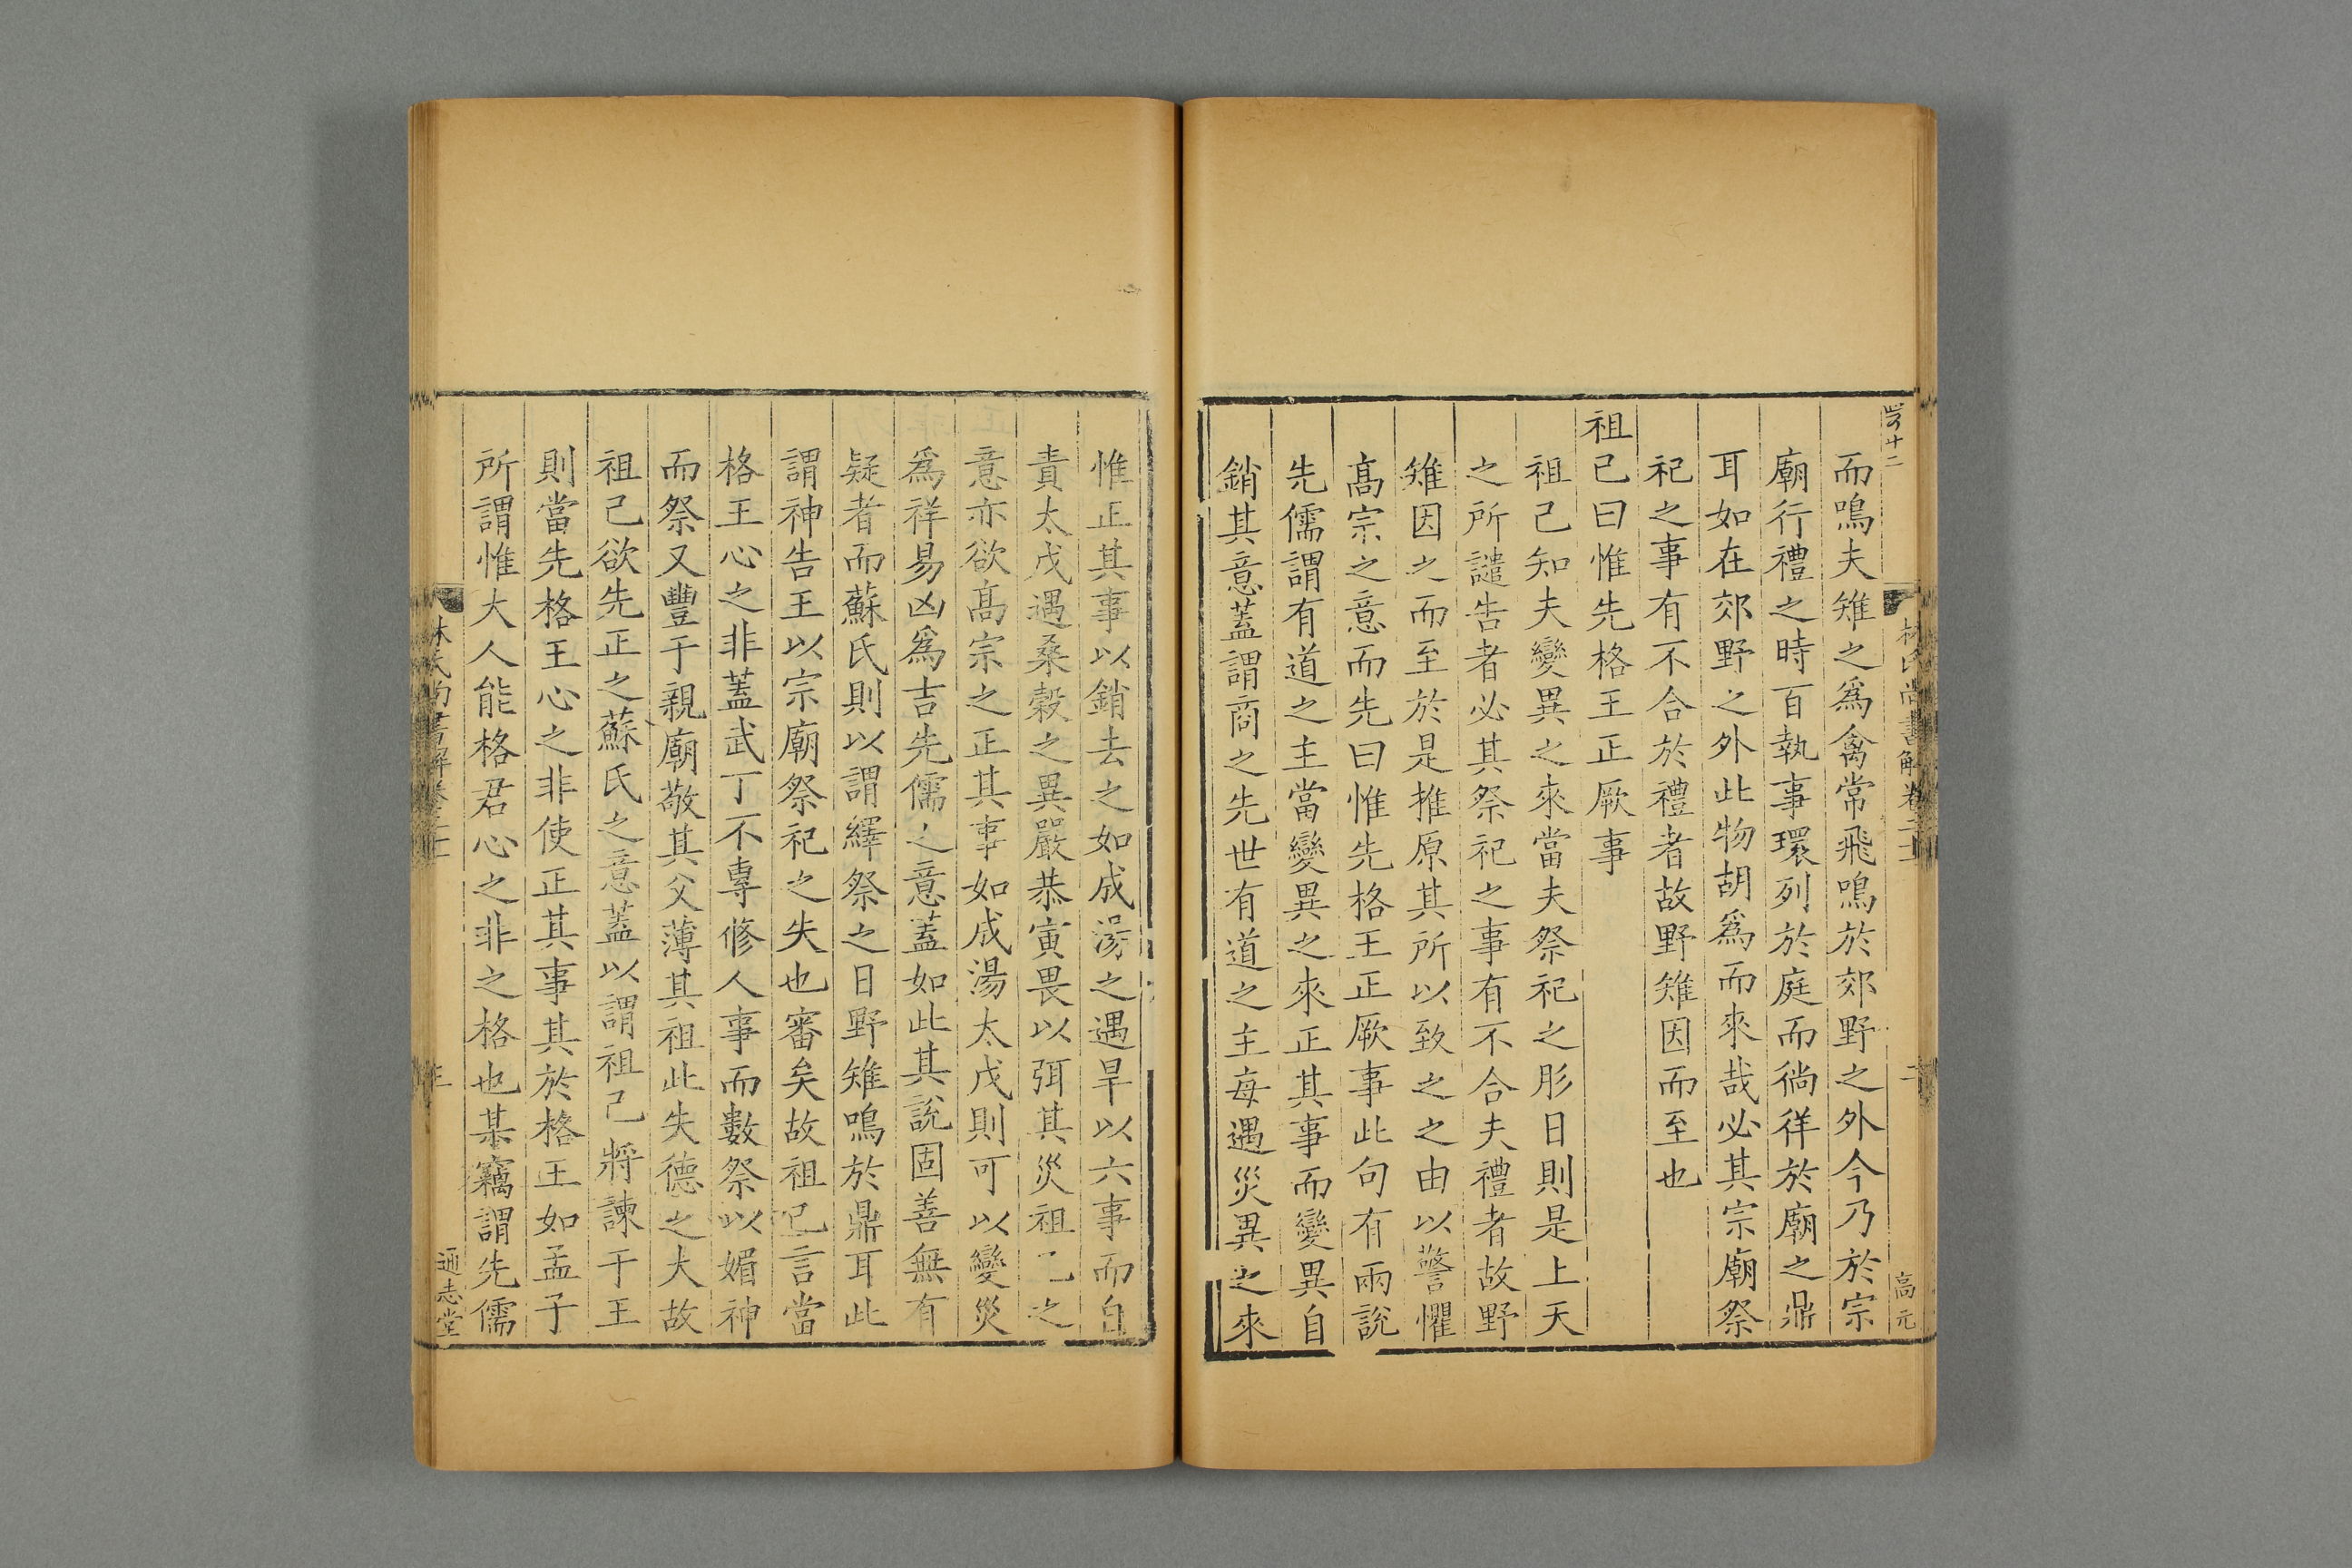 而鳴夫雉之爲禽常飛鳴於郊野之外今乃於宗
廟行禮之時百執事環列於庭而徜徉於廟之鼎
耳如在郊野之外此物胡爲而來哉必其宗廟祭
祀之事有不合於禮者故野雉因而至也
祖己曰惟先格王正厥事
祖己知夫變異之來當夫祭祀之肜日則是上天
之所譴告者必其祭祀之事有不合夫禮者故野
雉因之而至於是推原其所以致之之由以警懼
髙宗之意而先曰惟先格王正厥事此句有兩說
先儒謂有道之主當變異之來正其事而變異自
銷其意蓋謂商之先世有道之主每遇災異之來
惟正其事以銷去之如成湯之遇旱以六事而自
責太戊遇桑榖之異嚴恭寅畏以弭其災祖乙之
意亦欲髙宗之正其事如成湯太戊則可以變災
爲祥易凶爲吉先儒之意蓋如此其說固善無有
疑者而蘇氏則以謂繹祭之日野雉鳴於鼎耳此
謂神告王以宗廟祭祀之失也審矣故祖己言當
格王心之非蓋武丁不專修人事而數祭以媚神
而祭又豐于親廟敬其父薄其祖此失德之大故
祖己欲先正之蘇氏之意蓋以謂祖己將諫于王
則當先格王心之非使正其事其於格王如孟子
所謂惟大人能格君心之非之格也某竊謂先儒
林氏尚書解卷
通志堂
林氏尚書解卷二十
二
高元